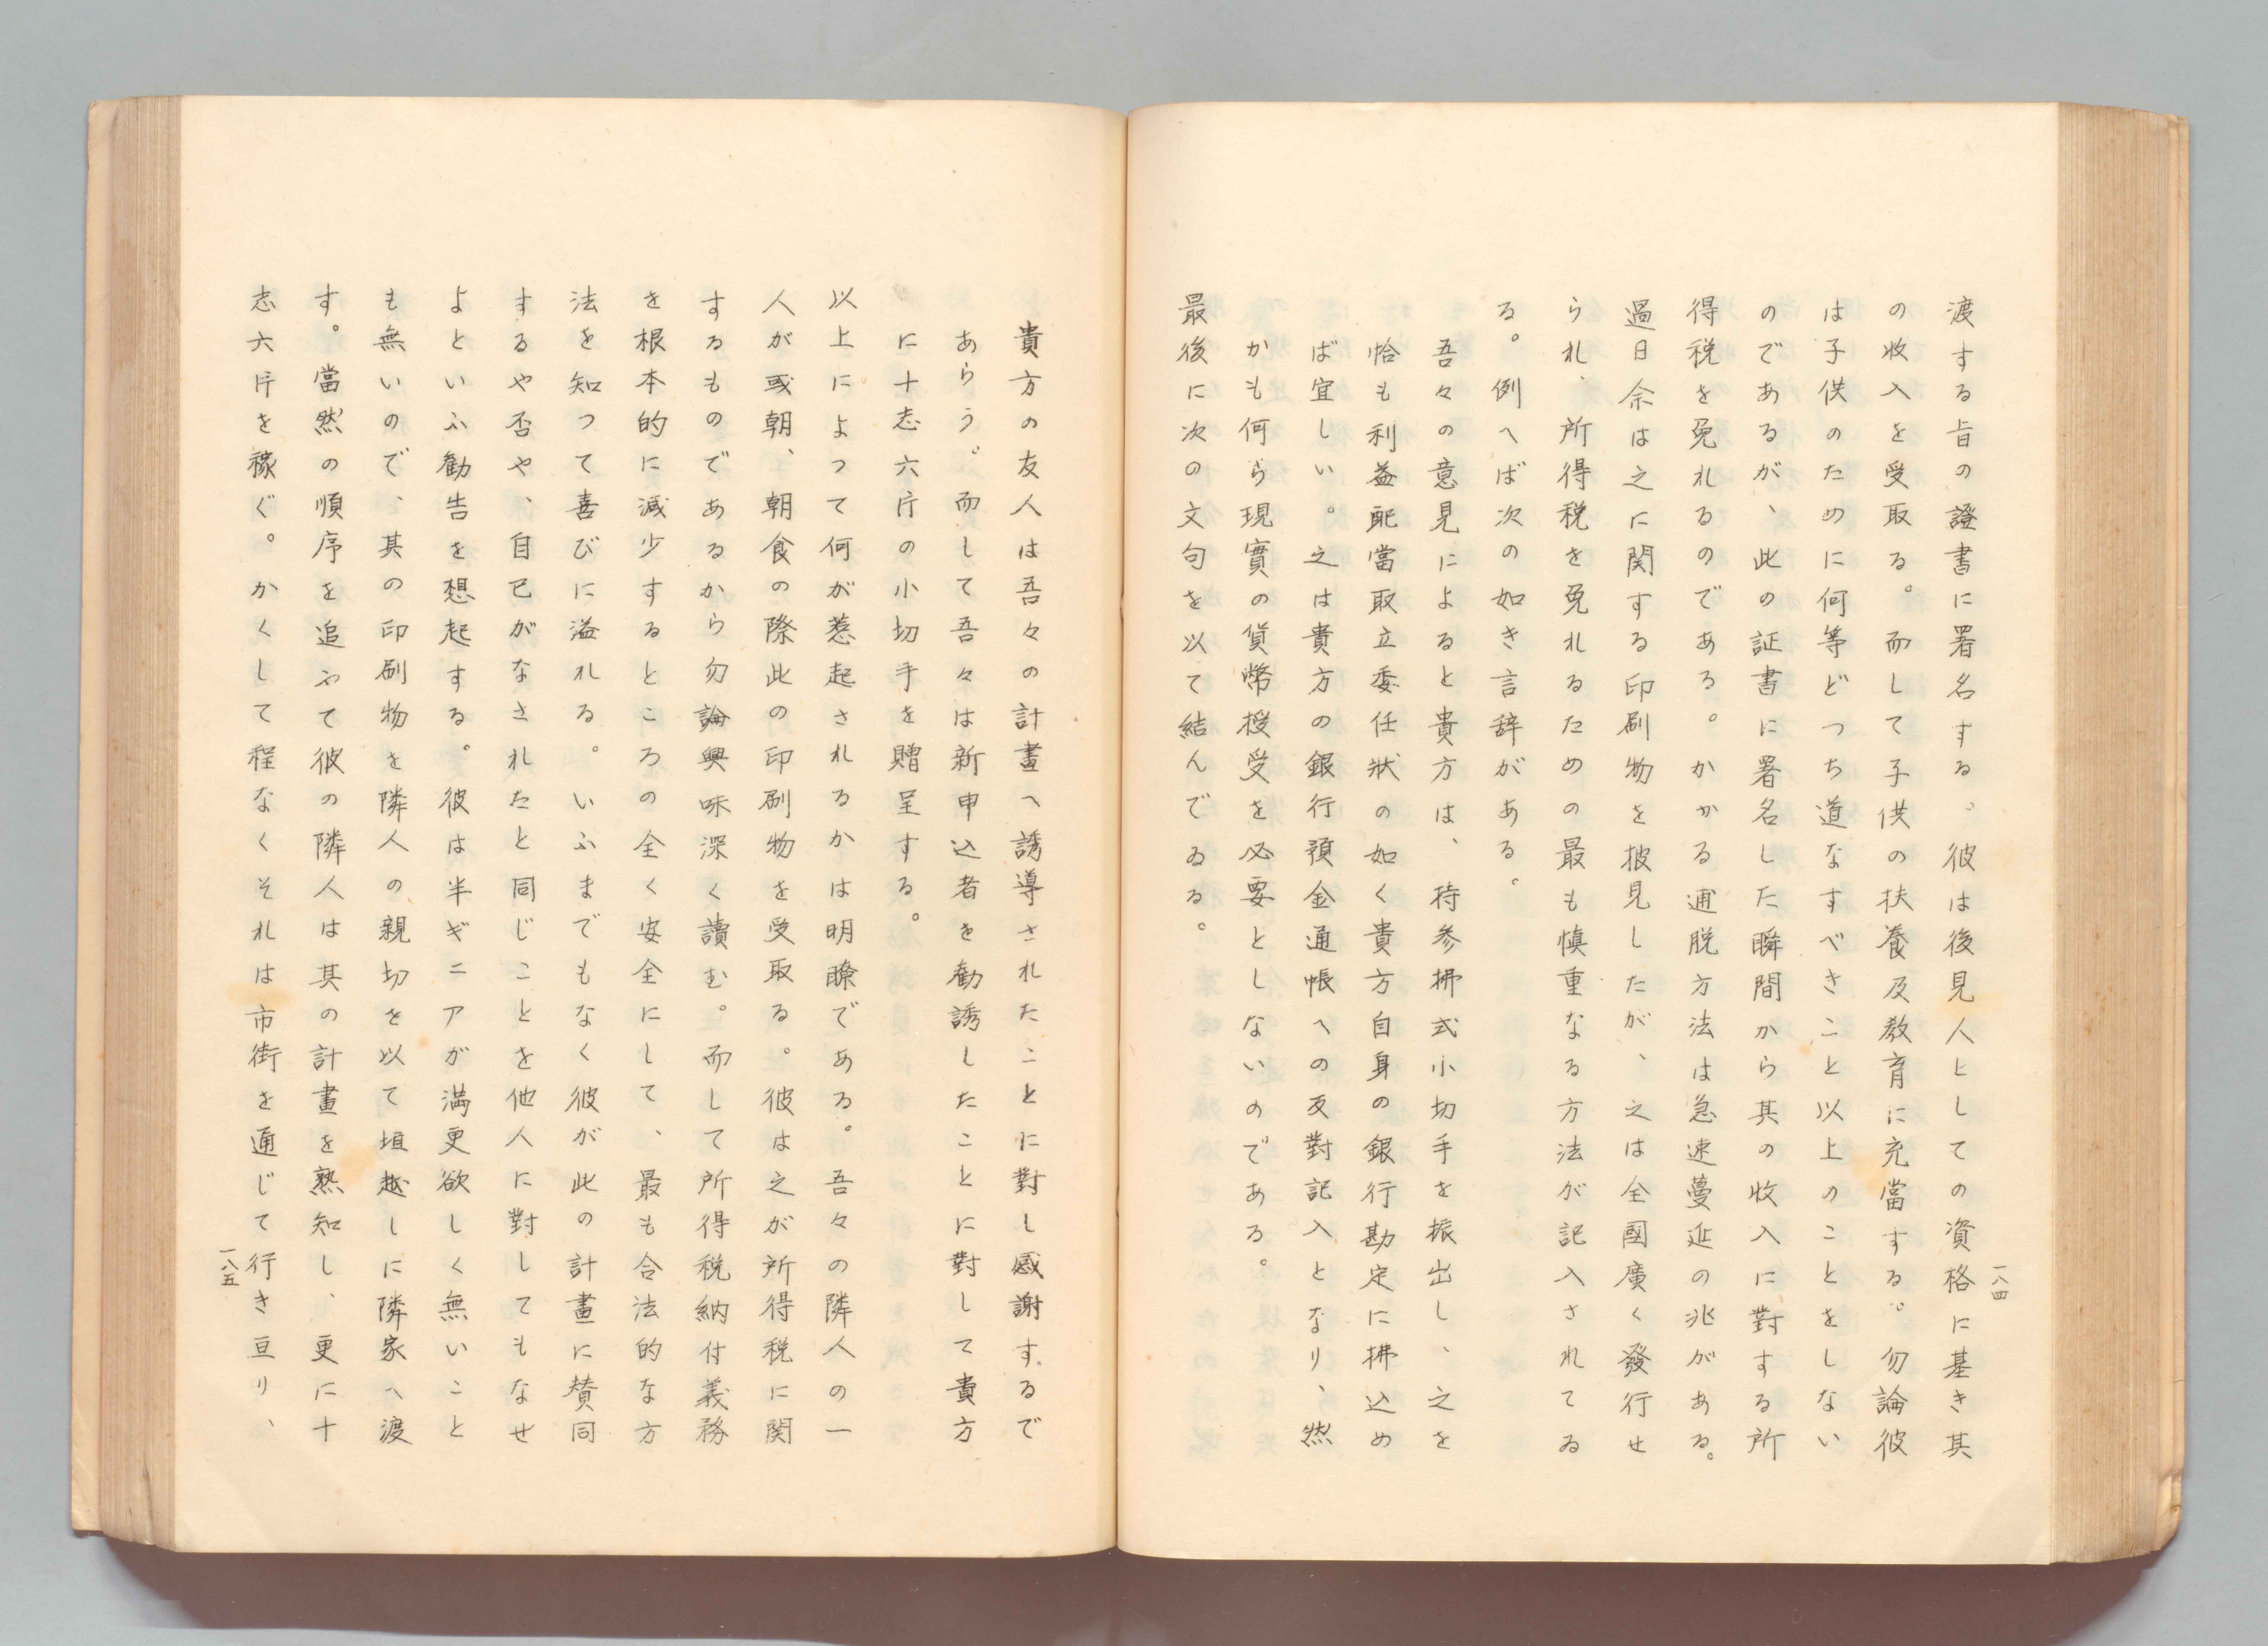 一八四
渡する旨の證書に署名する。彼は後見人としての資格に基き其
の收入を受取る。而して子供の扶養及教育に充當する。勿論彼
は子供のために何等どつち道なすべきこと以上のことをしない
のであるが、此の証書に署名した瞬間から其の收入に對する所
得税を免れるのである。かかる逋脱方法は急速蔓延の兆がある。
過日余は之に関する印刷物を披見したが、之は全國廣く發行せ
られ、所得税を免れるための最も慎重なる方法が記入されてゐ
る。例へば次の如き言辞がある。
吾々の意見によると貴方は、持参拂式小切手を振出し、之を
恰も利益配當取立委任狀の如く貴方自身の銀行勘定に拂込め
ば宜しい。之は貴方の銀行預金通帳への反對記入となり、然
かも何ら現實の貨幣授受を必要としないのである。
最後に次の文句を以て結んでゐる。
貴方の友人は吾々の計畫へ誘導されたことに對し感謝するで
あらう。而して吾々は新申込者を勧誘したことに對して貴方
に十志六片の小切手を贈呈する。
以上によつて何が惹起されるかは明瞭である。吾々の隣人の一
人が或朝、朝食の際此の印刷物を受取る。彼は之が所得税に関
するものであるから勿論興味深く讀む。而して所得税納付義務
を根本的に減少するところの全く安全にして、最も合法的な方
法を知つて喜びに溢れる。いふまでもなく彼が此の計畫に賛同
するや否や、自已がなされたと同じことを他人に對してもなせ
よといふ勧告を想起する。彼は半ギニアが満更欲しく無いこと
も無いので、其の印刷物を隣人の親切を以て垣越しに隣家へ渡
す。當然の順序を追ふて彼の隣人は其の計畫を熟知し、更に十
志六片を稼ぐ。かくして程なくそれは市街を通じて行き亘り、
一八五